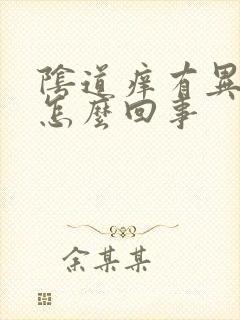 陰道痒有異
怎麼回事
余某某